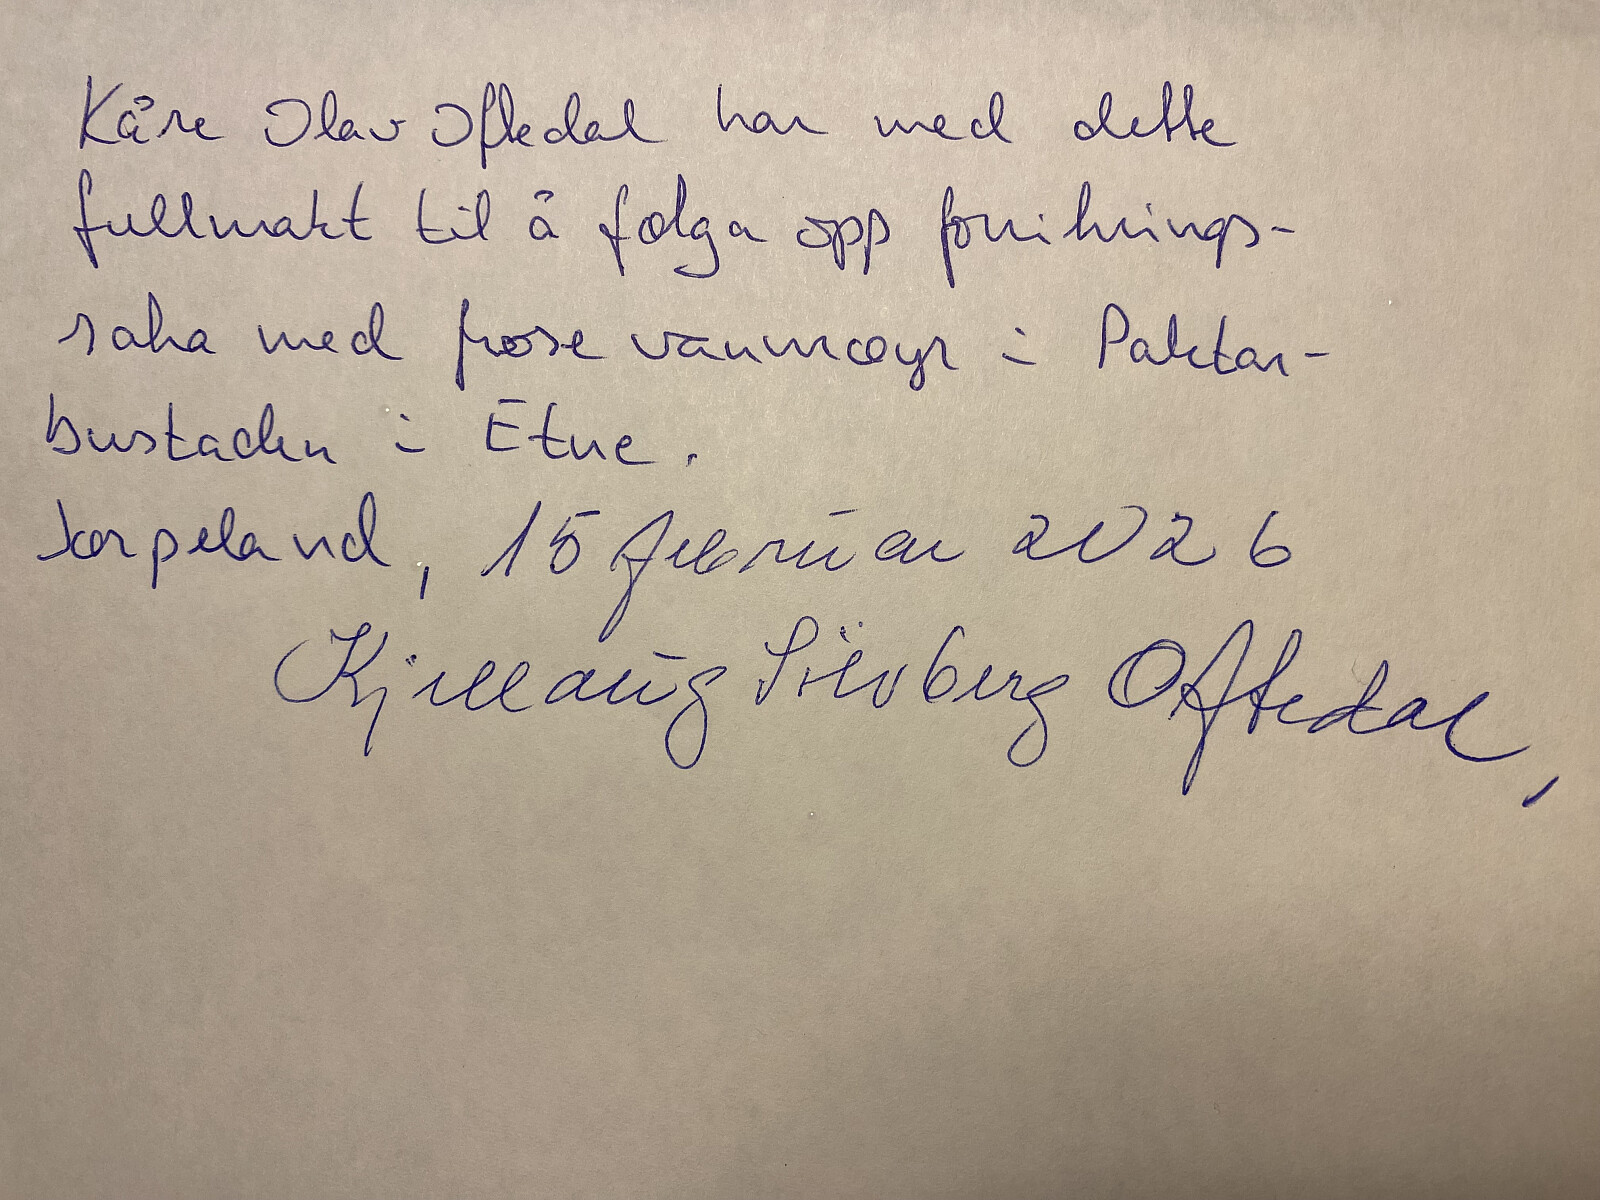 Kåre Olav Oftedal har med dette
fullmakt til å følga opp forsikrings-
saka med frose vannrøyr i Paktar-
bustaden i Etne.
Jørpeland, 15 februar 2026
Kjellaug Silvberg Oftedal,